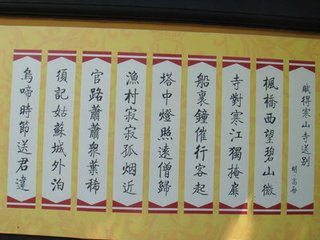 賦得寒山寺送別
明·高啟
楓橋西望碧山微
寺對寒江獨掩扉
船裏鐘催行客起
塔中燈照遠僧歸
漁村寂寂孤烟近
官路蕭蕭眾葉稀
須記姑蘇城外泊
烏啼時節送君違